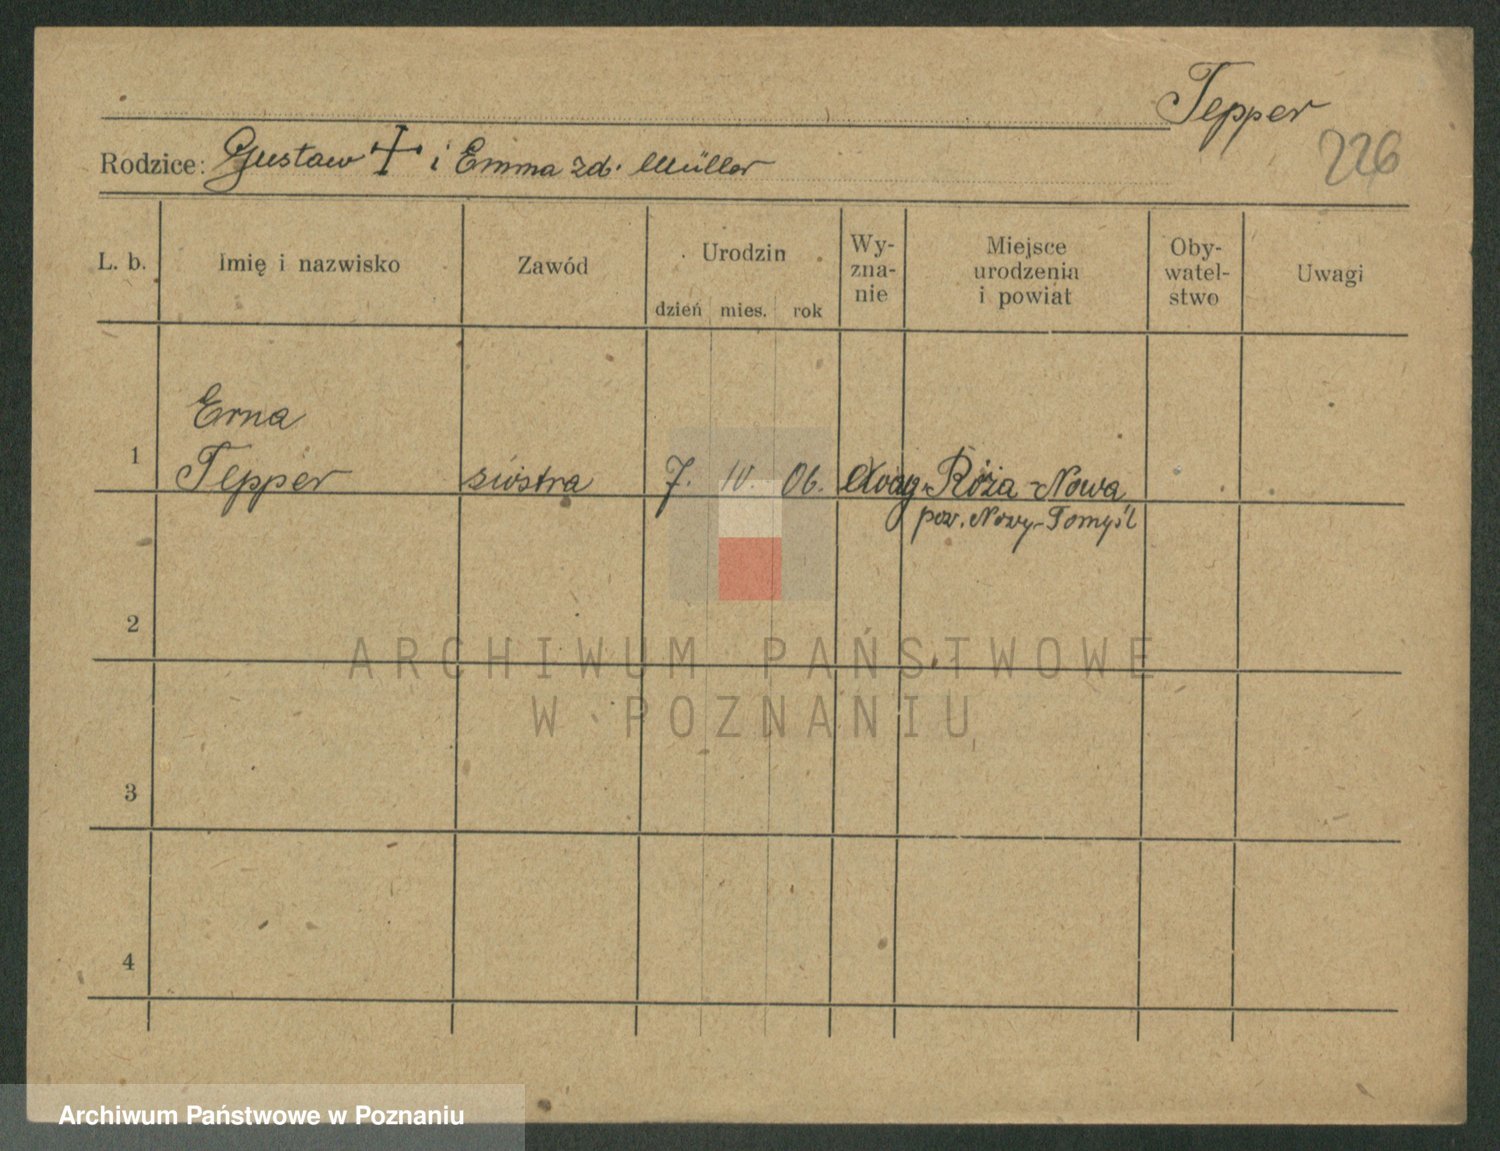 Tepper
226
Rodzice: Gustaw + i Emma zd. Müller
L. b. Imię i nazwisko Zawód Urodzin dzień mies. rok Wy-zna-nie Miejsce urodzenia i powiat Oby-watel-stwo Uwagi
Erna
1 Tepper siostra 7. IV. 06. ewag. Róża-Nowa
pow. Nowy-Tomyśl
2
ARCHIWUM PAŃSTWOWE
W POZNANIU
3
4
Archiwum Państwowe w Poznaniu